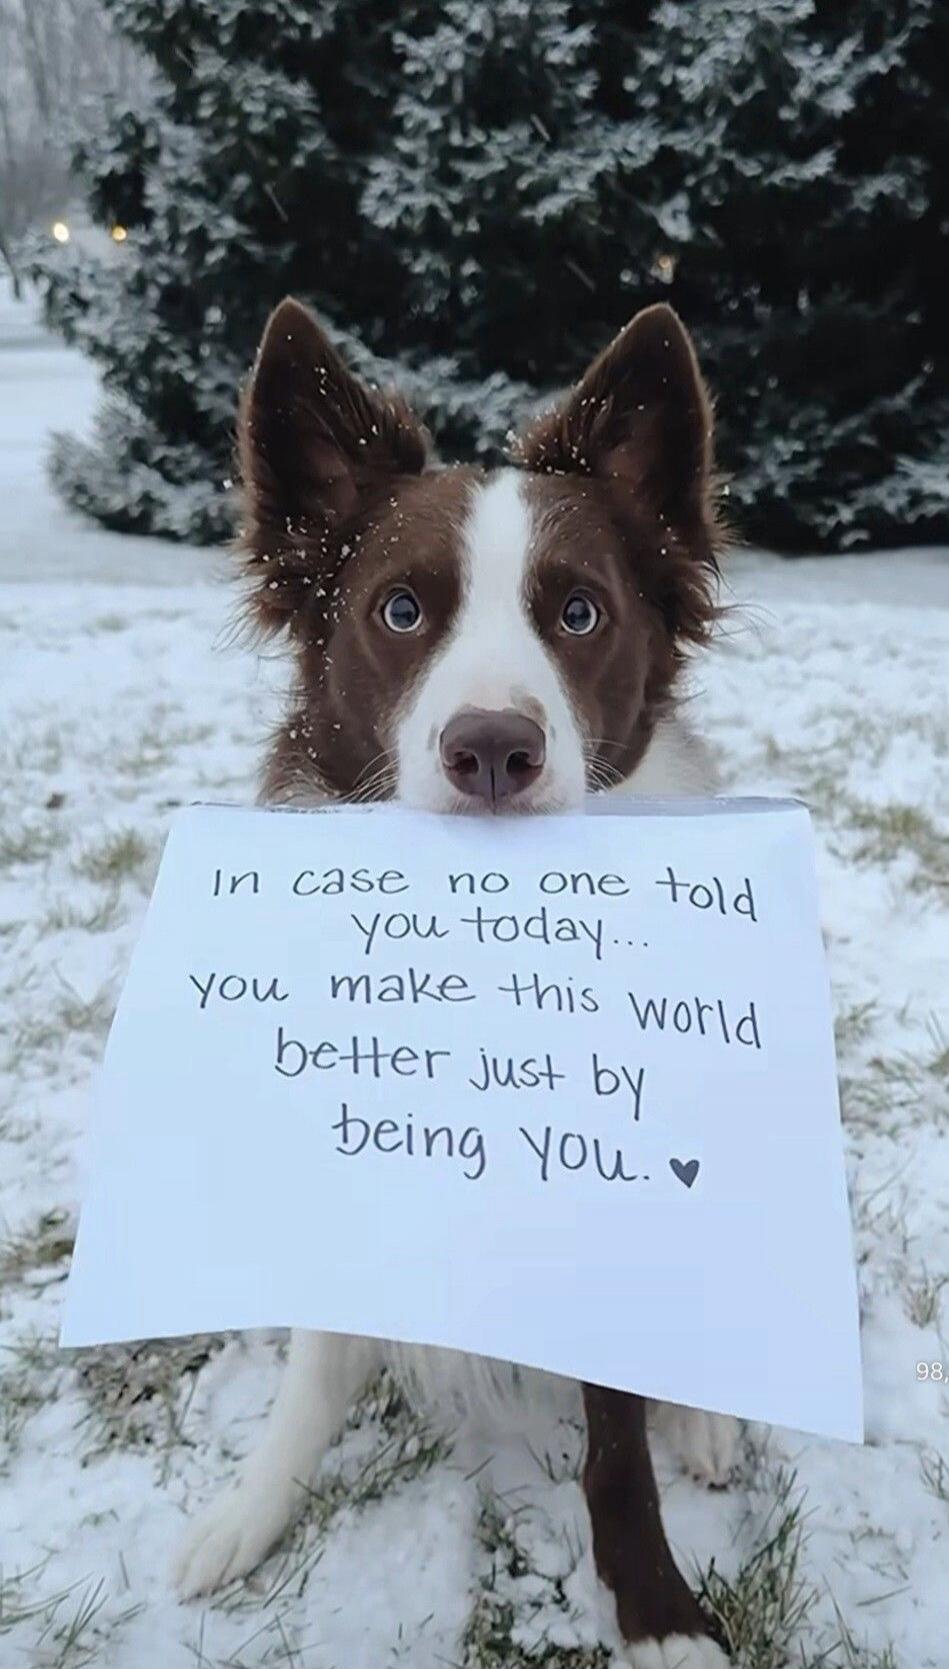 In case no one told
you today...
you make this world
better just by
being you. ♥
98,